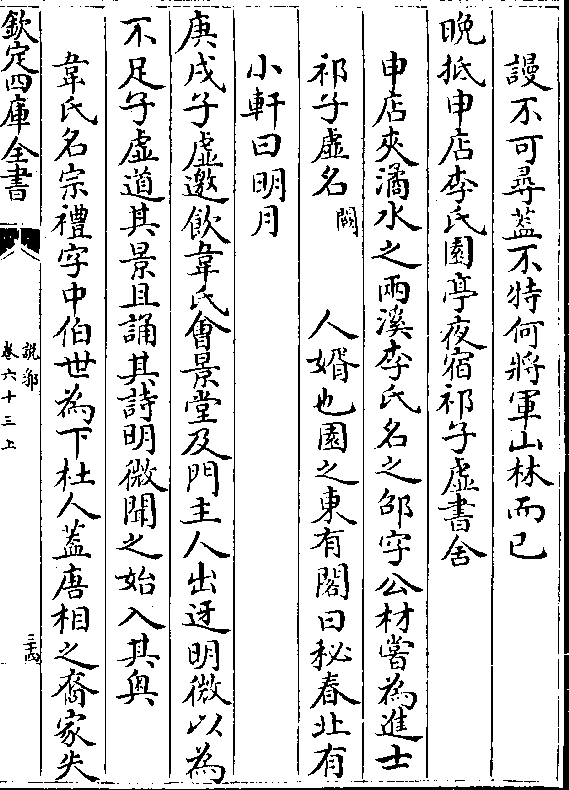 謾不可尋蓋不特何將軍山林而已
晚抵申店李氏園亭夜宿祁子虛書舍
申店夾潏水之兩溪李氏名之邵字公材嘗為進士
祁子虛名闕人婿也園之東有閣曰秘春北有
小軒曰明月
庚戌子虛邀飲韋氏會景堂及門主人出迓明微以為
不足子虛道其景且誦其詩明微聞之始入其奥
韋氏名宗禮字中伯世為下杜人蓋唐相之裔家失
欽定四庫全書
說郛
卷六十三上
三十四